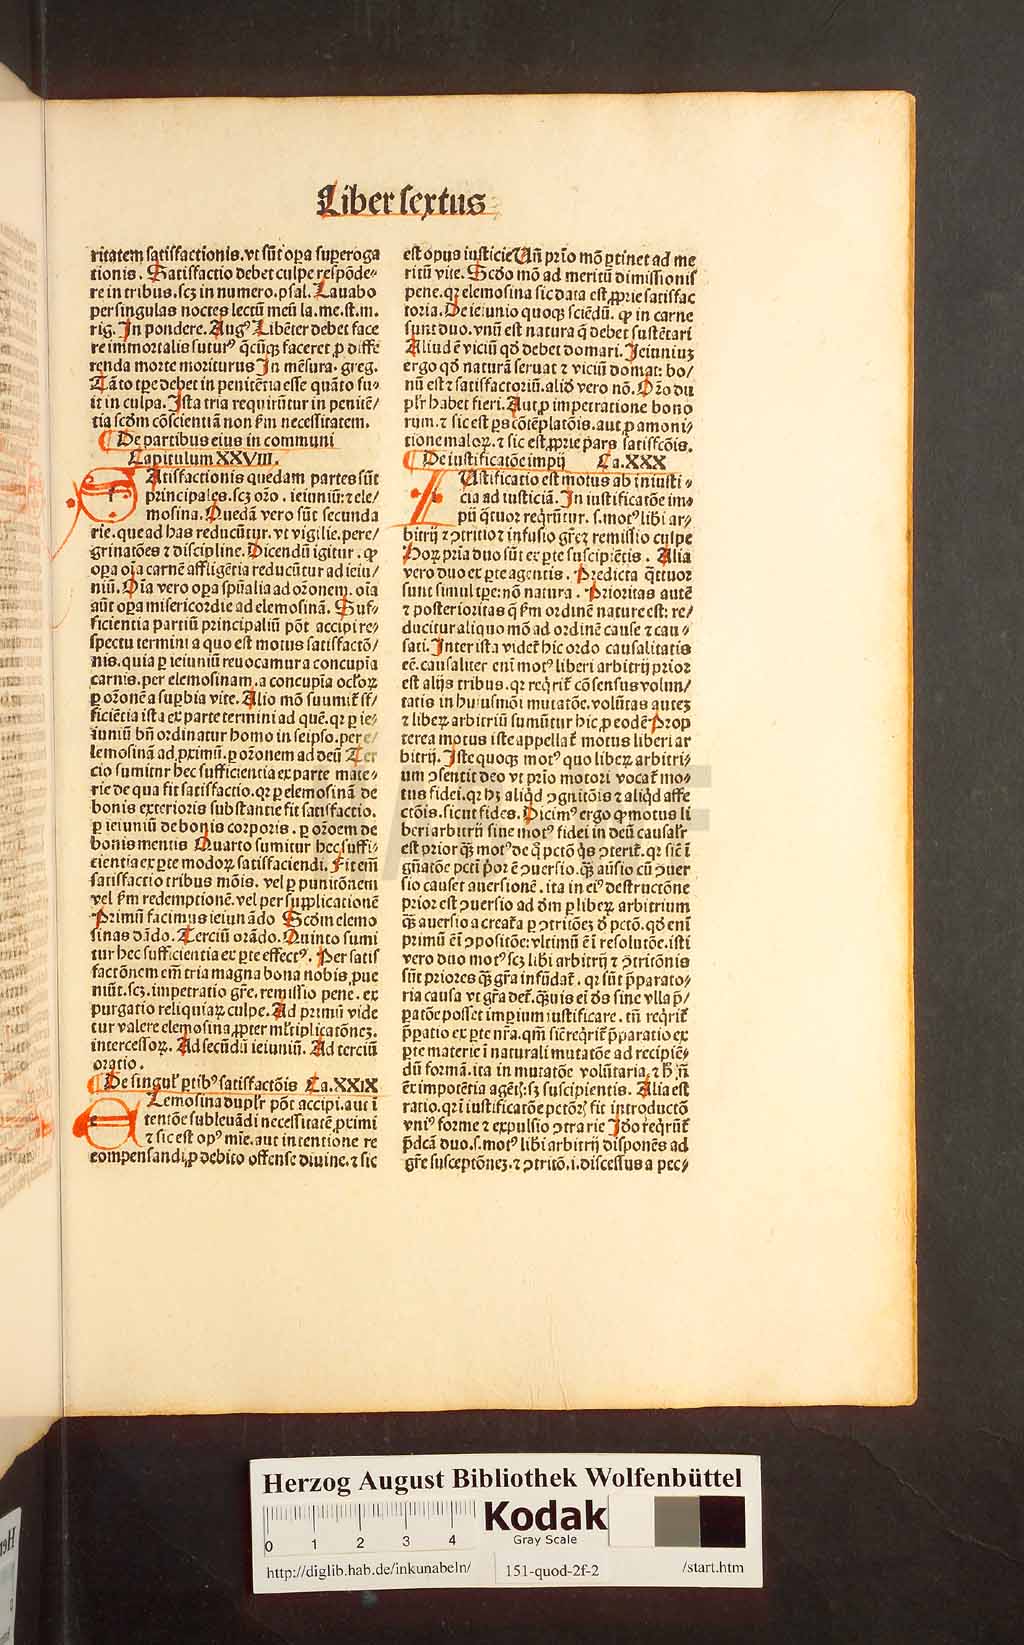 Liber sextus
ritatem satisfactionis. vt sūt oꝑa suꝑeroga
tionis. Satisfactio debet culpe respōde-
re in tribus. scꝫ in numero. psal. Lauabo
per singulas noctes lectū meū la. me. st. m.
rig. In pondere. Augꝰ Libēter debet face
re immortalis futurꝰ q̄cūqꝫ faceret ꝓ diffe
renda morte moriturus In mēsura. greg.
Tāto tꝑe debet in penitētia esse quāto fu-
it in culpa. Ista tria requirūtur in penitē/
tia scdm cōscientiā non ẜm necessitatem.
De partibus eius in communi
Capitulum XXVIII.
Atisfactionis quedam partes sūt
principales. scꝫ oꝛo. ieiuniū: ⁊ ele/
mosina. Quedā vero sūt secunda
rie. que ad has reducūtur. vt vigilie. pere/
grinatōes ⁊ discipline. Dicendū igitur. ꝙ
oꝑa oīa carnē affligētia reducūtur ad ieiu/
niū. Oīa vero oꝑa spūalia ad oꝛonem. oīa
aūt oꝑa misericordie ad elemosinā. Suf-
ficientia partiū principaliū pōt accipi re-
spectu termini a quo est motus satisfactō/
nis. quia ꝑ ieiuniū reuocamur a concupīa
carnis. per elemosinam. a concupīa oclꝛoꝝ
ꝑ oꝛonē a suꝑbia vite. Alio mō sumit̄ sf̄/
ficiētia ista ex parte termini ad quē. qꝛ ꝑ ie-
iuniū bn̄ ordinatur homo in seipso. per e/
lemosinā ad ꝓximū. ꝑ oꝛonem ad deū Ter
cio sumitur hec sufficientia ex parte mate-
rie de qua fit satisfactio. qꝛ ꝑ elemosinā de
bonis exterioris substantie fit satisfactio.
ꝑ ieiuniū de bonis corporis. ꝑ oꝛoem de
bonis mentis Quarto sumitur hec suffi-
cientia ex ꝑte modoꝝ satisfaciendi. Fit em̄
satisfactio tribus mōis. vel ꝑ punitōnem
vel ẜm redemptionē. vel per supplicationē
Primū facimus ieiunādo Scdm elemo
sinas dādo. Terciū orādo. Quinto sumi
tur hec sufficientia ex ꝑte effectꝰ. Per satis
factōnem em̄ tria magna bona nobis ꝓue
niūt. scꝫ. impetratio gr̄e. remissio pene. ex
purgatio reliquiaꝝ culpe. Ad primū vide
tur valere elemosina ꝓpter ml̄tiplicatōneꝫ.
intercessoꝝ. Ad secūdū ieiuniū. Ad terciū
oratio.
De singul̄ ꝑtibꝰ satisfactōis Ca. XXIX
Lemosina dupl̄r pōt accipi. aut ī
tentōe subleuādi necessitatē ꝓximi
⁊ sic est opꝰ mīe. aut intentione re
compensandi ꝓ debito offense diuine. ⁊ sic
est opus iusticie Vn̄ prīo mō ꝑtinet ad me
ritū vite. Scdo mō ad meritū dimissionis
pene. qꝛ elemosina sic data est ꝓprie satisfac
toria. De ieiunio quoqꝫ sciēdū. ꝙ in carne
sunt duo. vnū est natura q̄ debet sustētari
Aliud ē viciū qd̄ debet domari. Ieiuniuꝫ
ergo qd̄ naturā seruat ⁊ viciū domat: bo/
nū est ⁊ satisfactoriū. aliō vero nō. Oꝛo du
pl̄r habet fieri. Aut ꝓ impetratione bono
rum. ⁊ sic est ꝑs cōtēplatōis. aut ꝓ amoni-
tione maloꝝ. ⁊ sic est ꝓprie pars satisfcōis.
De iustificatōe impij Ca. XXX
Ustificatio est motus ab iniusti-
cia ad iusticiā. In iustificatōe im-
pii q̄tuor req̄rūtur. s. motꝰ libi ar-
bitrij ⁊ ꝯtritio ⁊ infusio gr̄eꝫ remissio culpe
Hoꝝ pria duo sūt ex ꝑte suscipiētis. Alia
vero duo ex ꝑte agentis. Predicta q̄ttuor
sunt simul tꝑe: nō natura. Prioritas autē
⁊ posterioritas q̄ ẜm ordinē nature est: re/
ducitur aliquo mō ad ordinē cause ⁊ cau-
sati. Inter ista videt̄ hic ordo causalitatis
eē. causaliter enī motꝰ liberi arbitrij prior
est alijs tribus. qꝛ req̄rit̄ cōsensus volun/
tatis in huiusmōi mutatōe. volūtas auteꝫ
⁊ libeꝝ arbitriū sumūtur hic ꝓ eodē Prop
terea motus iste appellat̄ motus liberi ar
bitrij. Iste quoqꝫ motꝰ quo libeꝝ arbitri-
um ꝯsentit deo vt prīo motori vocat̄ mo-
tus fidei. qꝛ hꝫ aliq̄d ꝯgnitōis ⁊ aliq̄d affe
ctōis. sicut fides. Dicimꝰ ergo ꝙ motus li
beri arbitrii siue motꝰ fidei in deū causal̄r
est prior q̄ꝫ motꝰ de q̄ pctō q̄s ꝯterit̄. qꝛ sic ī
gn̄atōe pcti p̄or ē ꝯuersio. q̄ꝫ au̇sio cū ꝯuer
sio causet auersionē. ita in eiꝰ destructōne
prior est ꝯuersio ad dm̄ ꝑ libeꝝ arbitrium
q̄ꝫ auersio a creat̄a ꝑ ꝯtritōeꝫ d̄ pctō. qd̄ enī
primū ē ī ꝯpositōe: vltimū ē ī resolutōe. isti
vero duo motꝰ scꝫ libi arbitrij ⁊ ꝯtritōnis
sūt priores q̄ꝫ gr̄a infūdat̄. qꝛ sūt p̄parato-
ria causa vt gr̄a det̄. q̄ꝫuis ei d̄s sine vlla p̄/
patōe posset impium iustificare. tn̄ req̄rit̄
p̄patio ex ꝑte nr̄a. qm̄ sic̄ req̄rit̄ p̄paratio ex
ꝑte materie ī naturali mutatōe ad recipiē-
dū formā. ita in mutatōe volūtaria. ⁊ h̄ nō
ex impotētia agētꝫ: sꝫ suscipientis. Alia est
ratio. qꝛ ī iustificatōe pctōꝝ fit introductō
vniꝰ forme ⁊ expulsio ꝯtrarie Ido req̄rūt̄
p̄dcā duo. s. motꝰ libi arbitrij disponēs ad
gr̄e susceptōneꝫ. ⁊ ꝯtritō. i. discessus a pec-
Herzog August Bibliothek Wolfenbüttel
0 1 2 3 4
Kodak
Gray Scale
http://diglib.hab.de/inkunabeln/
151-quod-2f-2
/start.htm